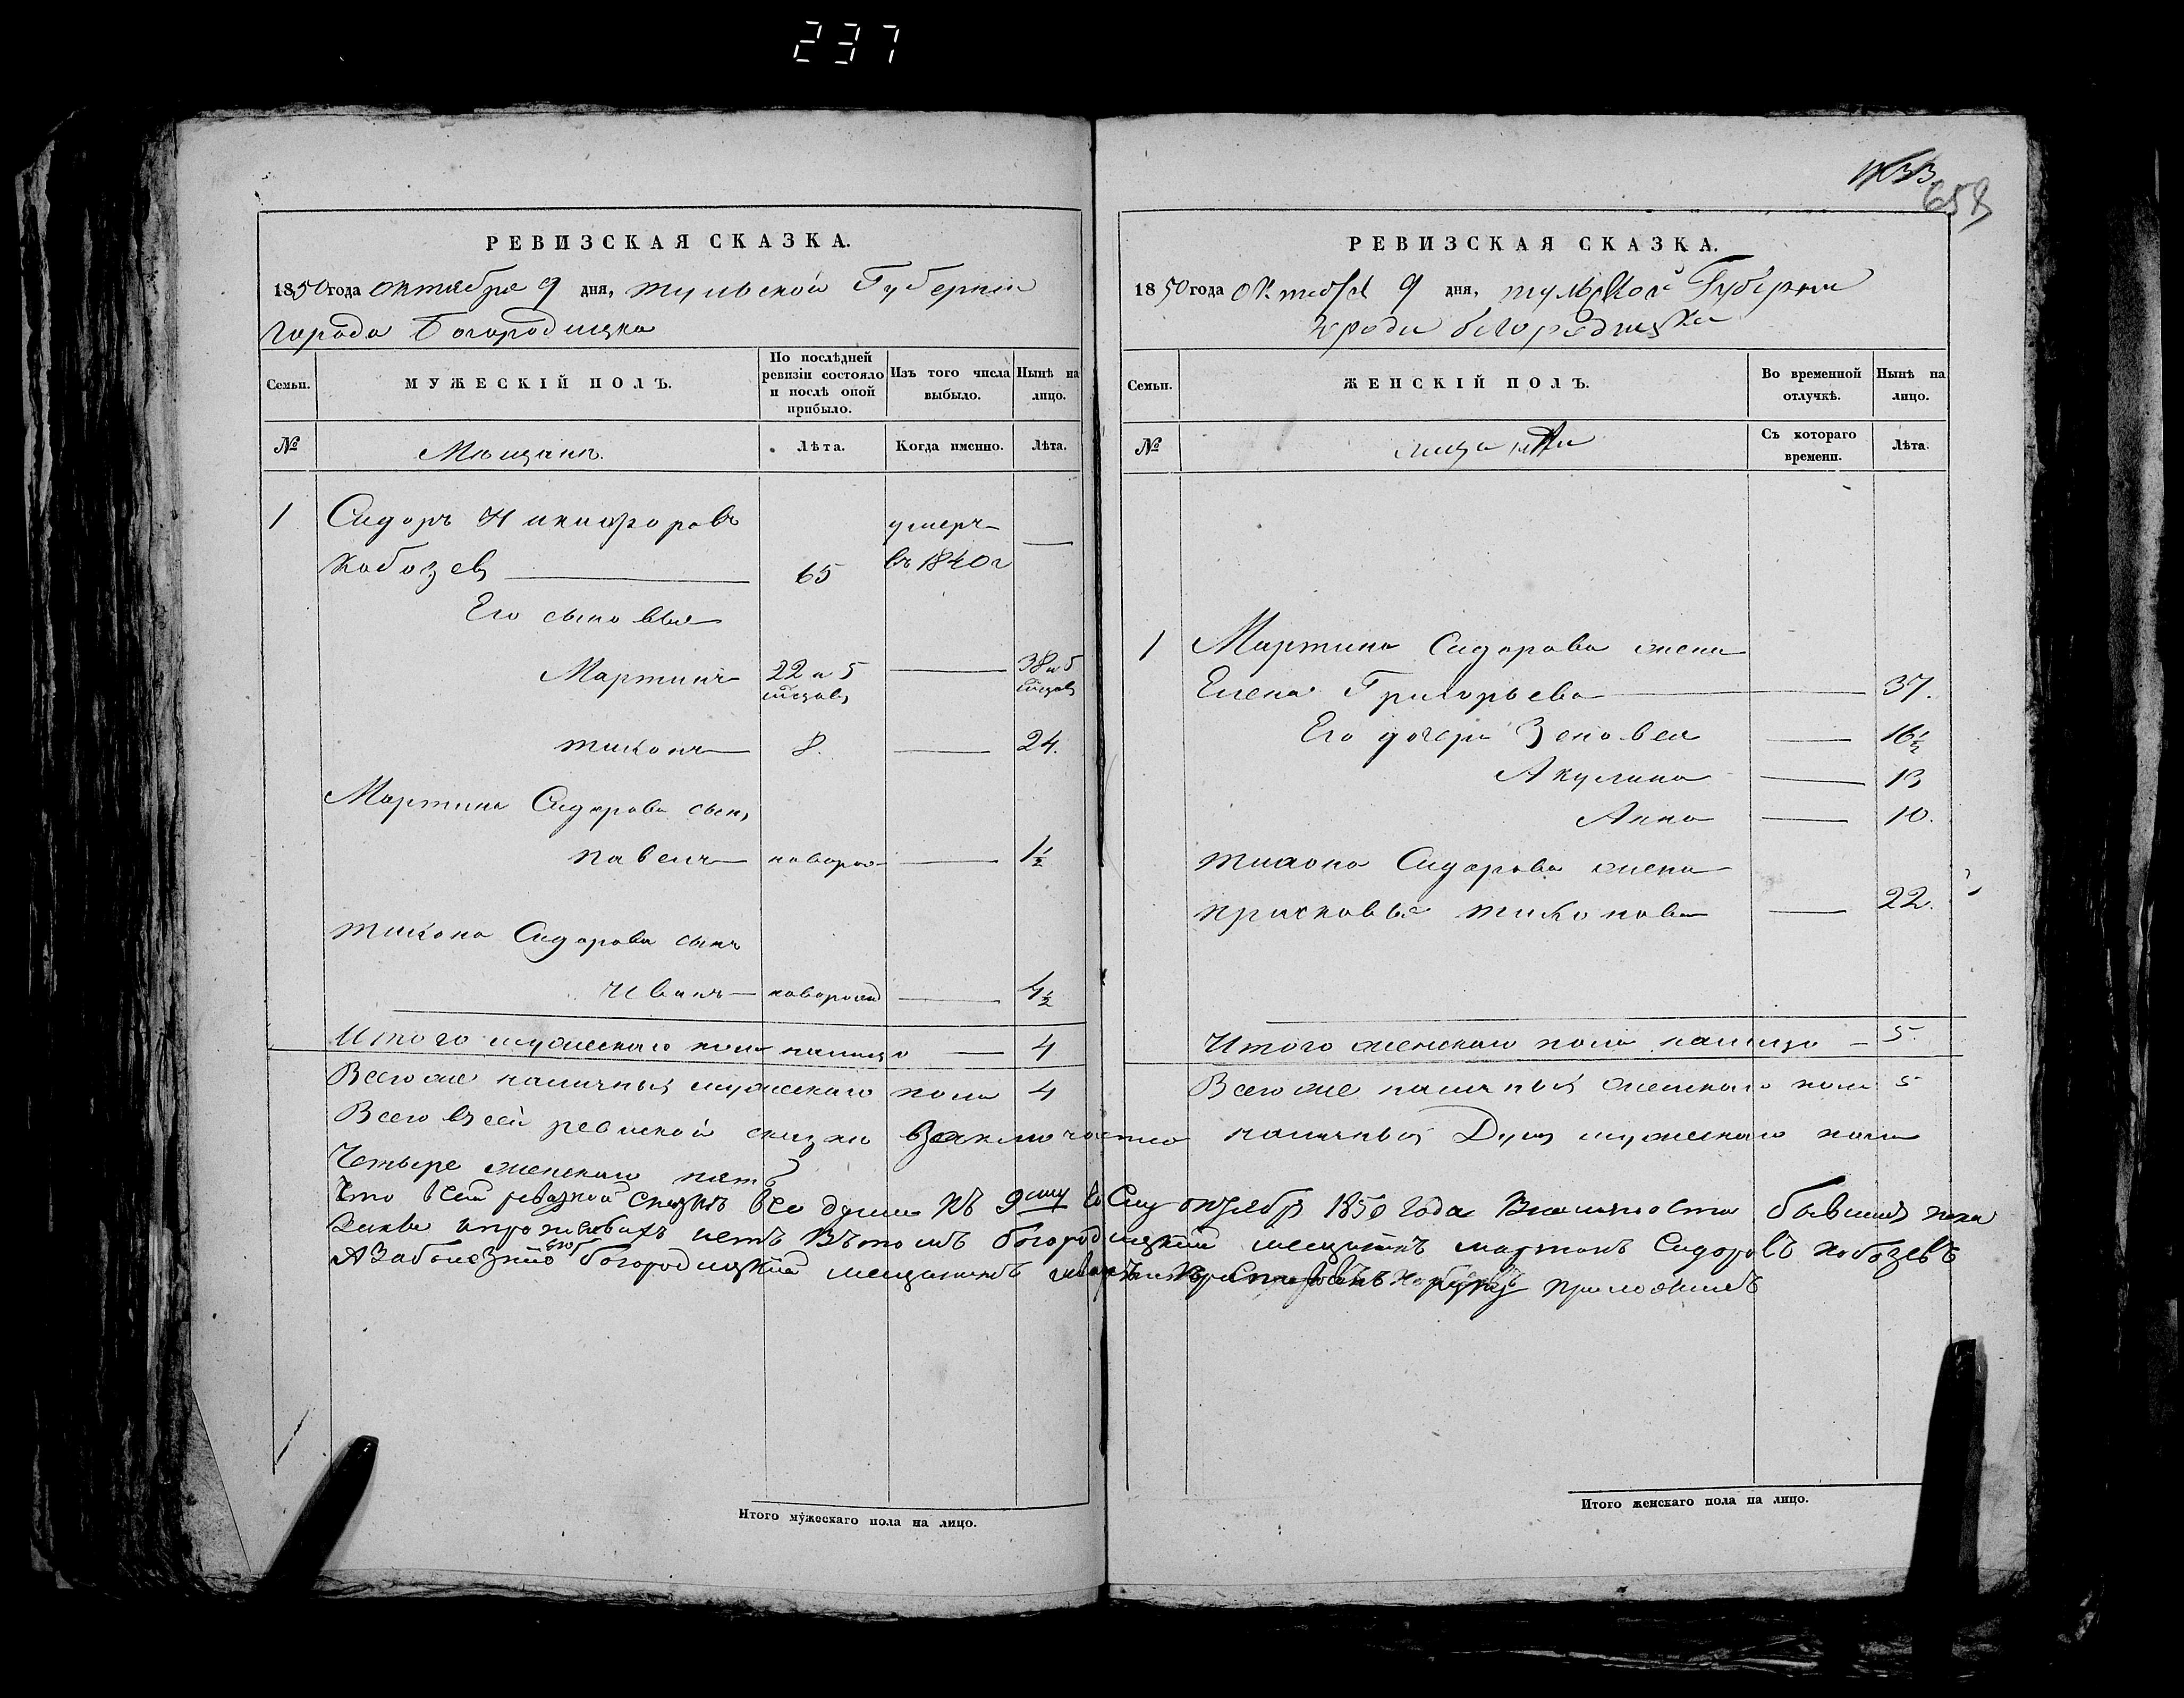 237
1133
658
РЕВИЗСКАЯ СКАЗКА.
1850 года октября 9 дня, тульской Губернiи
города Богородицка
Семьи.
МУЖЕСКІЙ ПОЛЪ.
По послѣдней ревизіи состояло и послѣ оной прибыло.
Изъ того числа выбыло.
Нынѣ на лицо.
№
Мещане.
Лѣта.
Когда именно.
Лѣта.
1 Сидоръ Никифоровъ умеръ —
Кобозев 65 въ 1840 г
Его сыновья
Мартинъ 22 и 5 месяцов — 38 и 5 месяцов
тихонъ 8. — 24.
Мартина Сидорова сын
павелъ новорож — 1 1/2
тихона Сидорова сынъ
иванъ новорожд — 4 1/2
Итого мужескаго пола налицо — 4
Всего же наличных мужескаго пола 4
РЕВИЗСКАЯ СКАЗКА.
1850 года октебря 9 дня, тульской Губернии
города богородицка
Семьи.
ЖЕНСКІЙ ПОЛЪ.
Во временной отлучкѣ.
Нынѣ на лицо.
№
мещанки
Съ котораго времени.
Лѣта.
1 Мартина Сидорова жена
Елена Григорьева — 37.
Его дочери Зеновея — 16 1/2
Акулина — 13
Анна — 10.
тихона Сидорова жена
прасковья тихонова — 22.
Итого женскаго пола налицо — 5.
Всего же наличных женскаго пола 5
Всего в сей ревиской скаски взаключается наличных Душ мужескаго пола
Четыре женскаго пять
Что всей ревизкой скаскъ все души къ 9ому Сему октября 1850 года Вналичности бывших
нетъ Вътомъ богородицкий мещанинъ мартинъ Сидоровъ кобозевъ
А Заболезнию его богородицкий мещанинъ руку приложилъ
Итого мужескаго пола на лицо.
Итого женскаго пола на лицо.